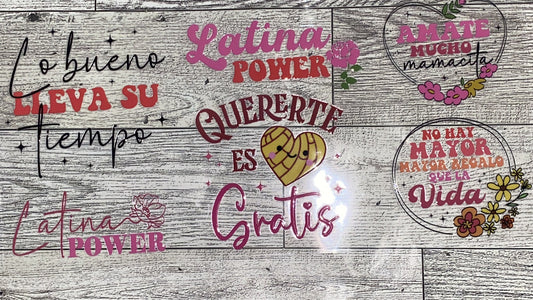 Lo bueno
LLEVA SU
tiempo
Latina
POWER
Latina
POWER
QUERERTE
ES
Gratis
AMATE
MUCHO
mamacita
NO HAY
MAYOR
MAYOR REGALO
QUE LA
Vida